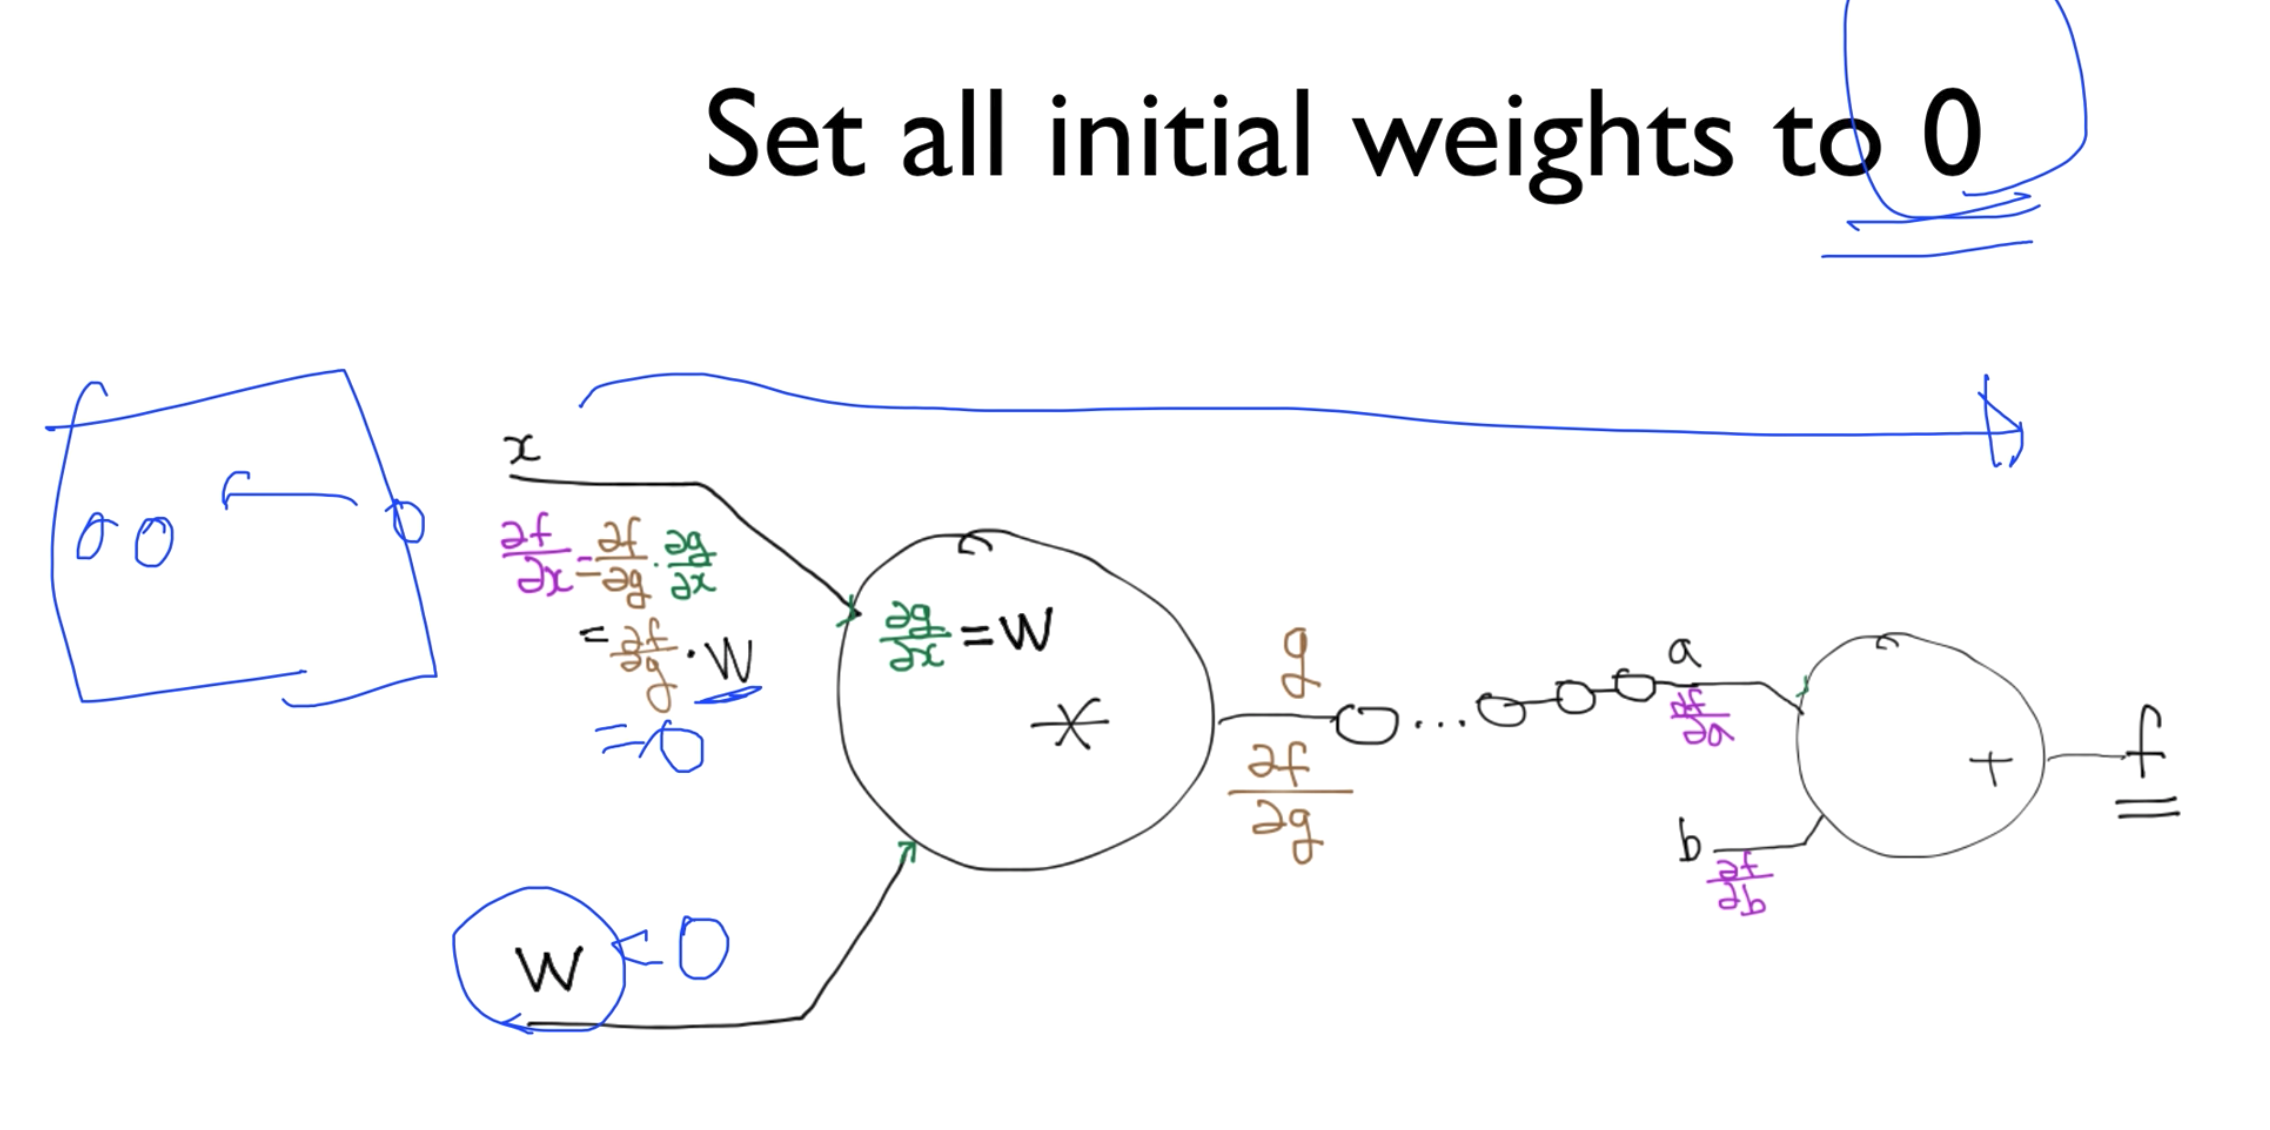 Set all initial weights to 0
x
∂f/∂x = ∂f/∂g · ∂g/∂x
= ∂f/∂g · W
= 0
0 0 0
∂g/∂x = W
*
g
∂f/∂g
...
a
∂f/∂a
+
f
b
∂f/∂b
W ← 0